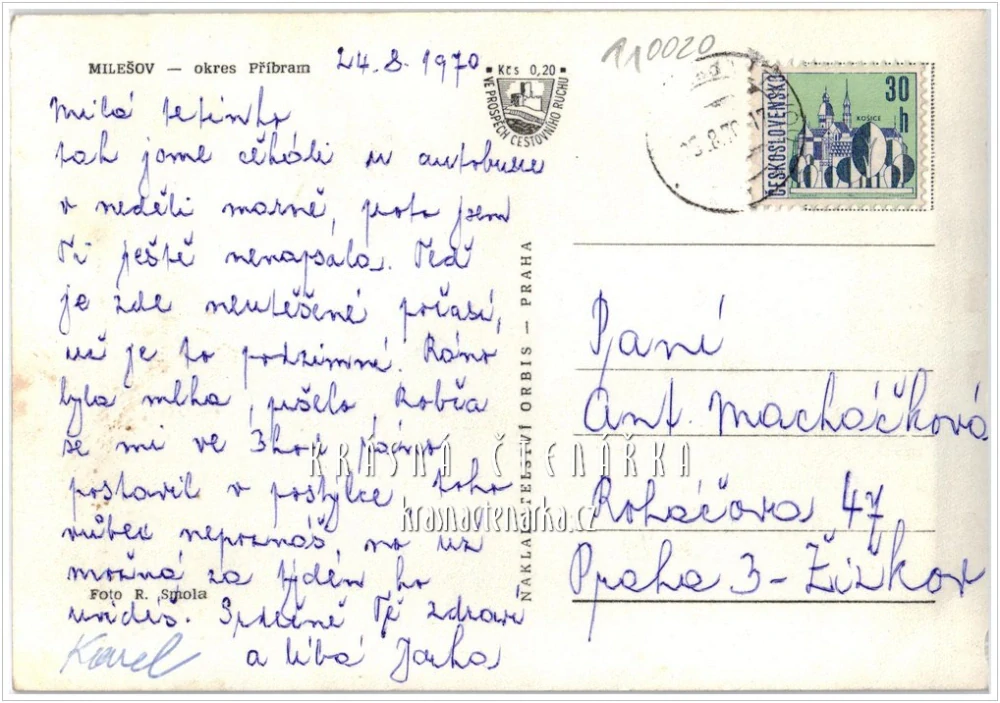 MILEŠOV — okres Příbram
24. 8. 1970
Milá tetinko
tak jsme čekali u autobusu
v neděli marně, proto jsem
Ti ještě nenapsala. Teď
je zde neutěšené počasí,
už je to podzimně. Ráno
byla mlha, pršelo, Robča
se mi ve 3 hod ráno
postavil v postýlce toho
vůbec nepoznáš, no už
možná za týden ho
uvidíš. Srdečně Tě zdraví
a líbá Jarka
Karel
Foto R. Smola
Kčs 0,20
VE PROSPĚCH CESTOVNÍHO RUCHU
NAKLADATELSTVÍ ORBIS — PRAHA
110020
ČESKOSLOVENSKO
30 h
KOŠICE
Paní
Ant. Macháčková
Roháčova 47
Praha 3 - Žižkov
KRÁSNÁ ČTENÁŘKA
krasnactenarka.cz